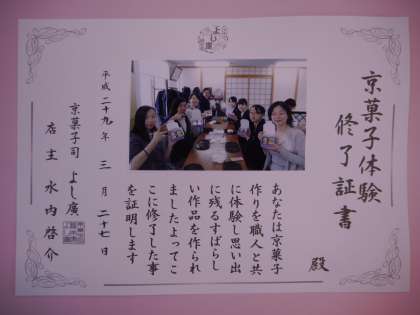 京菓子体験
修了証書
殿
あなたは京菓子
作りを職人と共
に体験し思い出
に残るすばらし
い作品を作られ
ましたよってこ
こに修了した事
を証明します
平成二十九年 三月 二十七日
京菓子司 よし廣
店主 水内啓介
よし廣